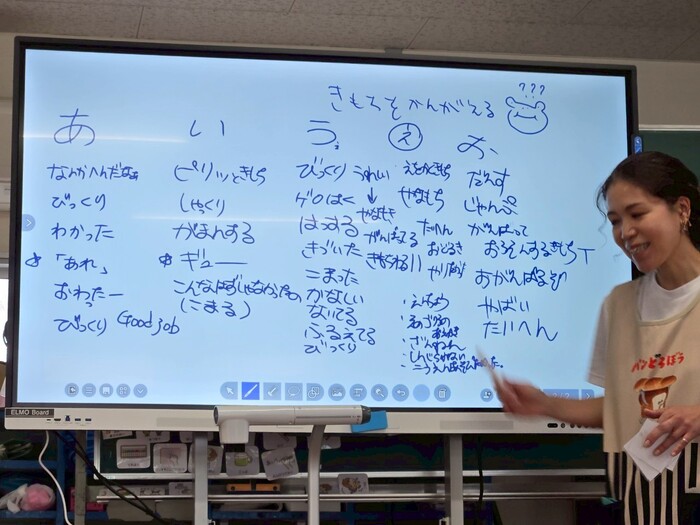 きもちをかんがえる
???
あ
なんかへんだなぁ
びっくり
わかった
「あれ」
おわったー
びっくり Good job
い
ピリッときもち
しゃっくり
がまんする
ギュー
こんなはずじゃなかったの
(こまる)
う
びっくり
ゲロはく
はっする
きづいた
こまった
かなしい
ないてる
ふるえてる
びっくり
うれい
がんばる
え
やなもち
たいへん
おどろき
しんじられない
お
だんす
じゃんぷ
がんばって
おうえんするきもち
おがんばるぞ
やばい
たいへん
ELMO Board
パンどろぼう